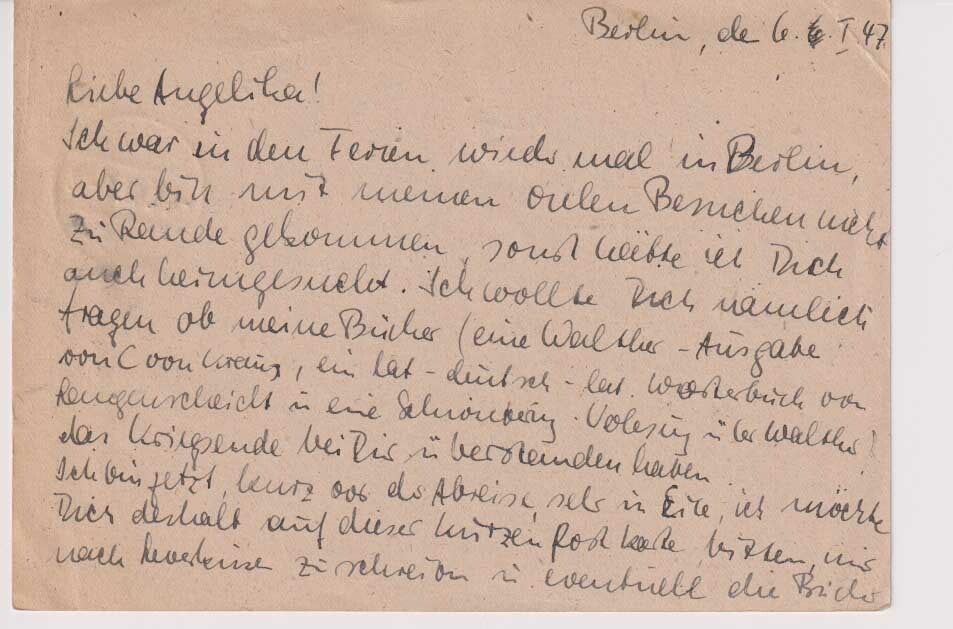 Berlin, de 6. I 47
Liebe Angelika!
Ich war in den Ferien wieder mal in Berlin,
aber bin mit meinen vielen Besuchen nicht
zu Rande gekommen, sonst hätte ich Dich
auch heimgesucht. Ich wollte Dich nämlich
fragen ob meine Bücher (eine Walther-Ausgabe
von C von Kraus, ein lat-deutsch-lat. Wörterbuch von
Langenscheidt u eine Vorlesung über Walther)
das Kriegsende bei Dir überstanden haben.
Ich bin jetzt, kurz vor der Abreise, sehr in Eile, ich möchte
Dich deshalb auf dieser kurzen Postkarte bitten, mir
nach Leverkusen zu schreiben u eventuell die Bücher